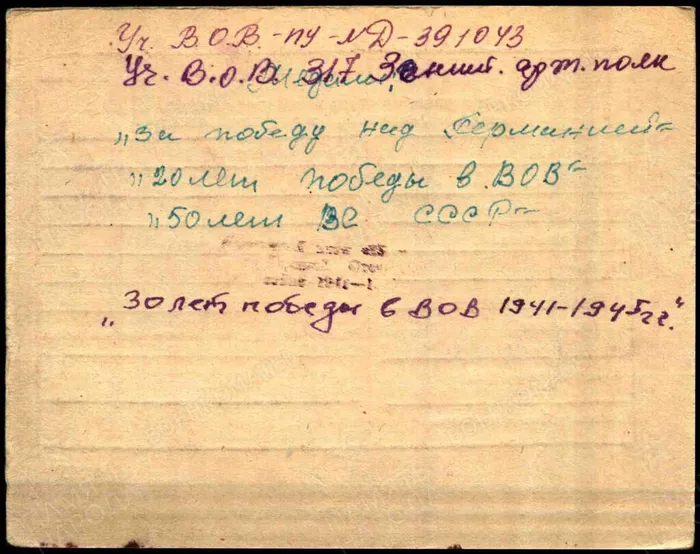 Уч. В.О.В.-ПУ-№Д-391043
Уч. В.О.В. 317 Зенит. арт. полк
Медали:
„За победу над Германией“
„20 лет победы в ВОВ“
„50 лет ВС СССР“
„30 лет победы в ВОВ 1941-1945гг.“